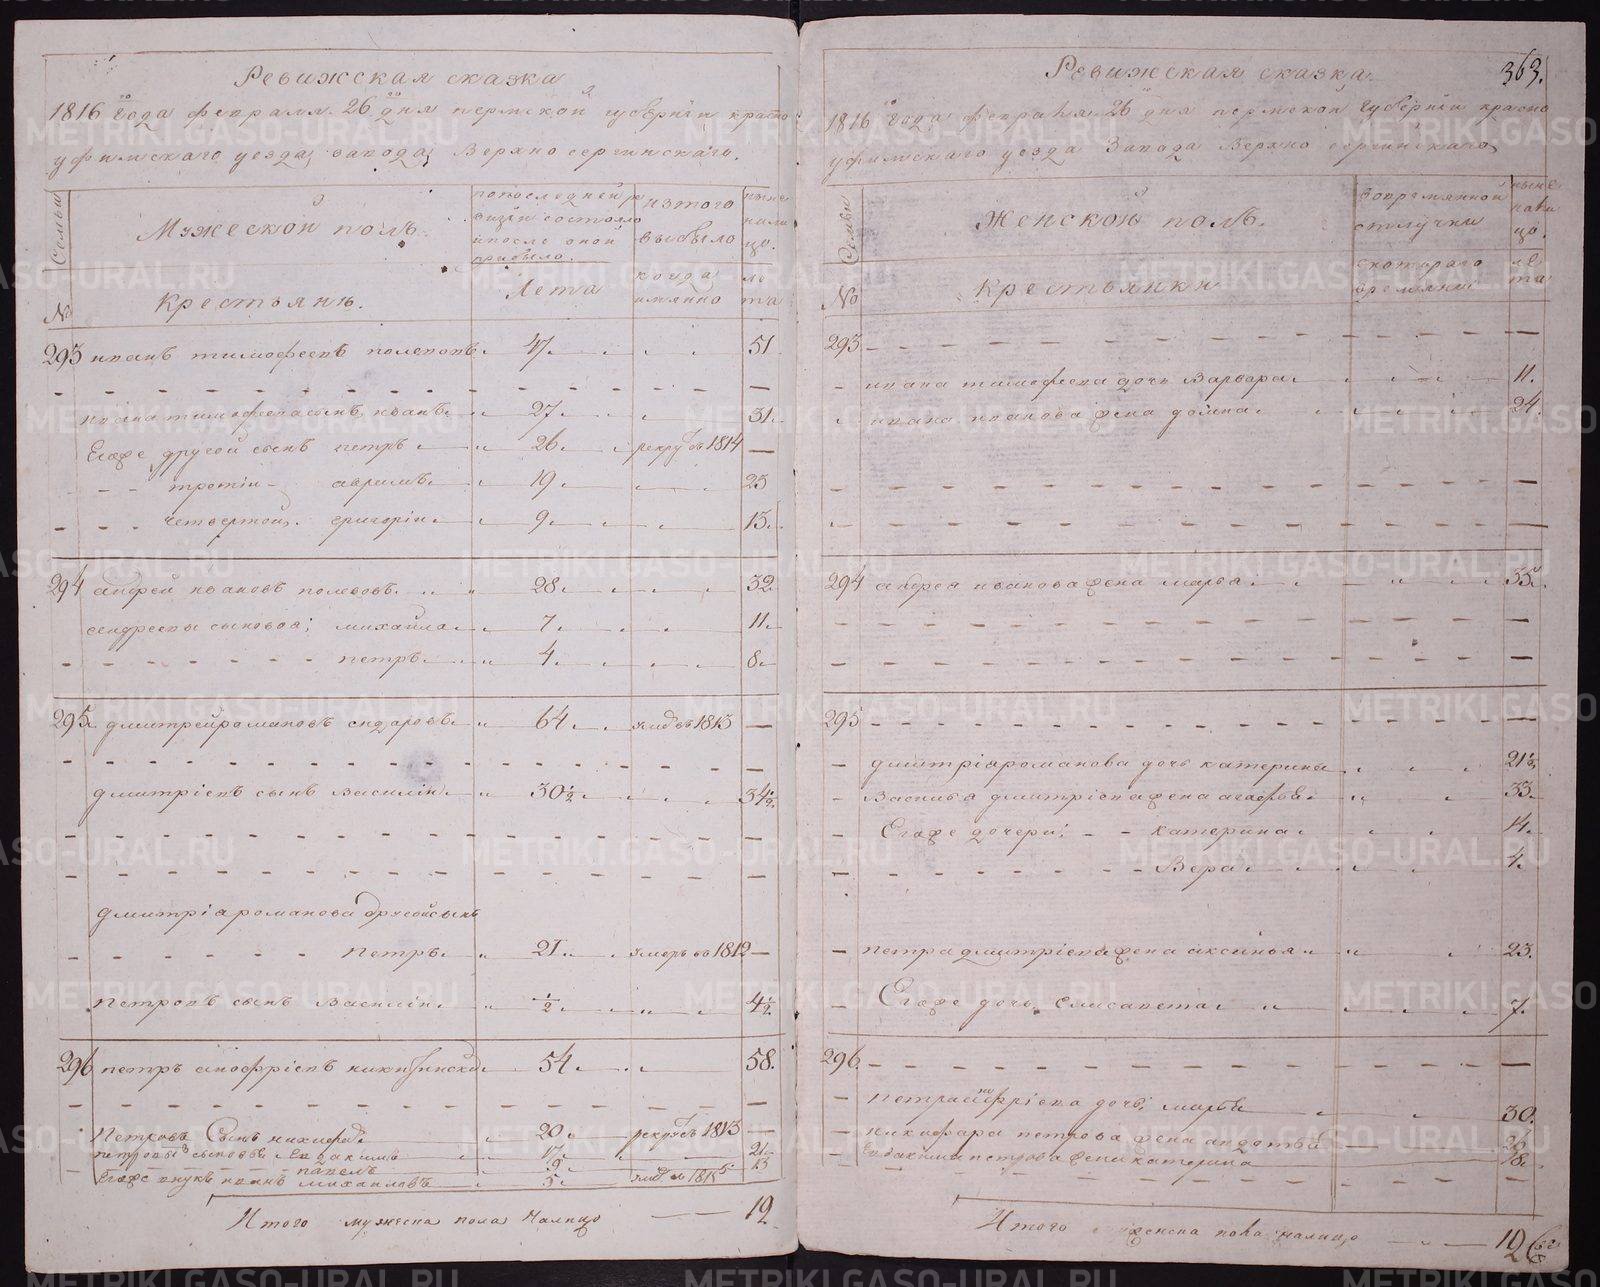 Ревижская сказка
1816го года февраля 26го дня пермской губерніи красно
уфимскаго уезда, завода, Верхно сергинскаго.
Семьи
Мужеской полъ.
попоследней ре
визіи состояло
ипосле оной
прибыло.
изтого
выбыло
ныне
нали
цо.
№
Крестьяне.
Лета
когда
имянно
ле
та
293 иванъ тимофеевъ полевовъ 47 51
ивана тимофеева сынъ иванъ 27 31
Егоже другой сынъ петръ 26 рекру въ 1814
третіи аврамъ 19 23
четвертой григорін 9 13
294 андрей ивановъ полевовъ 28 32
андреевы сыновья; михайла 7 11
петръ 4 8
295 дмитрей романовъ сидоровъ 64 умъ въ 1813
дмитріевъ сынъ василіи 30½ 34½
дмитрія романова другой сынъ
петръ 21 умеръ въ 1812
петровъ сынъ василіи ½ 4½
296 петръ анофріевъ 54 58.
петровъ сынъ никифоръ 20 рекру въ 1813
петровы сыновья Евдакимъ 17 21
павелъ 9 13
Егоже внукъ иванъ михаиловъ 5 ум въ 1815
Итого мужеска пола налицо 19
Ревижская сказка
363.
1816го года февраля 26го дня пермской губерніи красно
уфимскаго уезда Завода Верхно сергинскаго
Семьи
Женской полъ.
вовремянной
отлучки
ныне
нали
цо.
№
Крестьянки
скотораго
времяни
ле
та
293
ивана тимофеева дочь Варвара 11.
ивана иванова жена домна 24.
294 андрея иванова жена марья 35.
295
дмитрія романова дочь катерина 21½
Василья дмитріева жена агафья 33.
Егоже дочери; катерина 14.
Вера 4.
петра дмитріева жена аксинья 23.
Егоже дочь Елисавета 7.
296
петра анофріева дочь марья 30.
никифара петрова жена авдотья 26
Евдакима петрова жена катерина 18.
Итого женска пола налицо 12